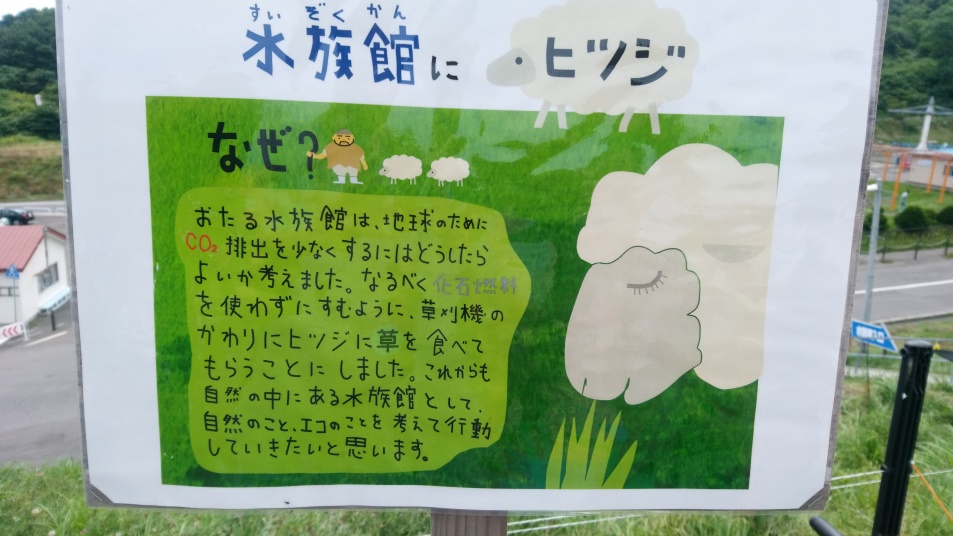 すいぞくかん
水族館に ヒツジ
なぜ?
おたる水族館は、地球のために
CO₂ 排出を少なくするにはどうしたら
よいか考えました。なるべく化石燃料
を使わずにすむように、草刈機の
かわりにヒツジに草を食べて
もらうことにしました。これからも
自然の中にある水族館として、
自然のこと、エコのことを考えて行動
していきたいと思います。